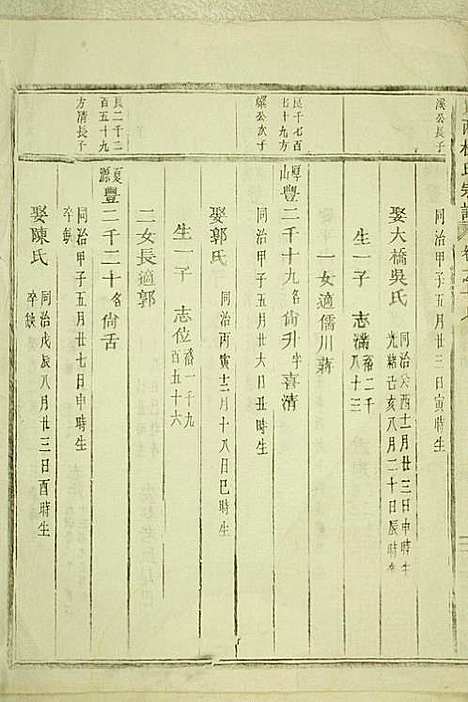 溪公長子
同治甲子五月廿三日寅時生
娶大橋吳氏 同治癸酉十一月廿三日申時生
光緒己亥八月二十日辰時卒
生一子 志滿 裕二千
八十三
一女適儒川蔣
良千七百
七十九方
騾公次子
厚山 豐二千十九名尙升字喜清
同治甲子五月廿六日丑時生
娶郭氏 同治丙寅十二月十八日巳時生
生一子 志位 裕一千九
百五十六
二女長適郭
良二千二
百五十九
方清長子
夏源 豐二千二十名尙舌
同治甲子五月廿七日申時生
卒缺
娶陳氏 同治戊辰八月廿三日酉時生
卒缺